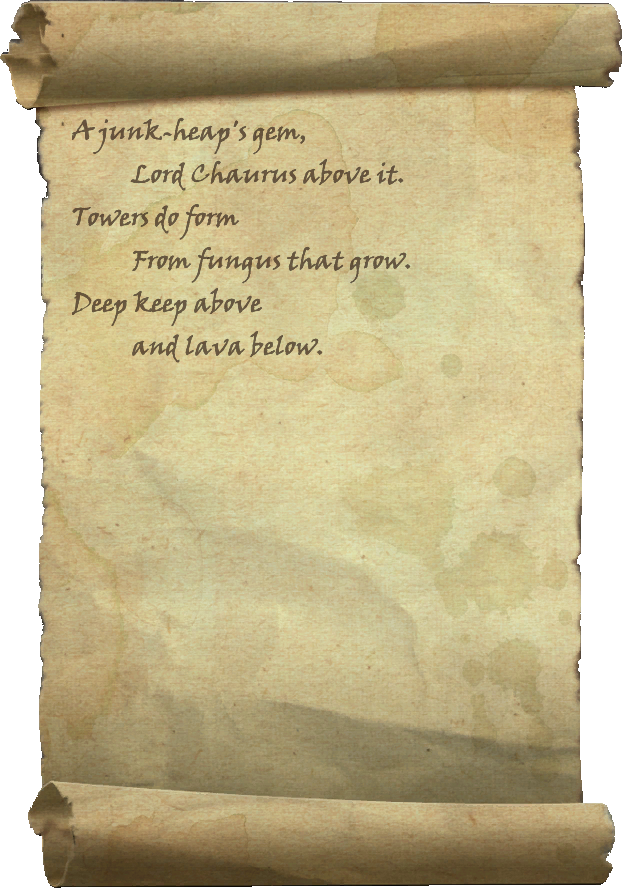 A junk-heap's gem,
Lord Chaurus above it.
Towers do form
From fungus that grow.
Deep keep above
and lava below.